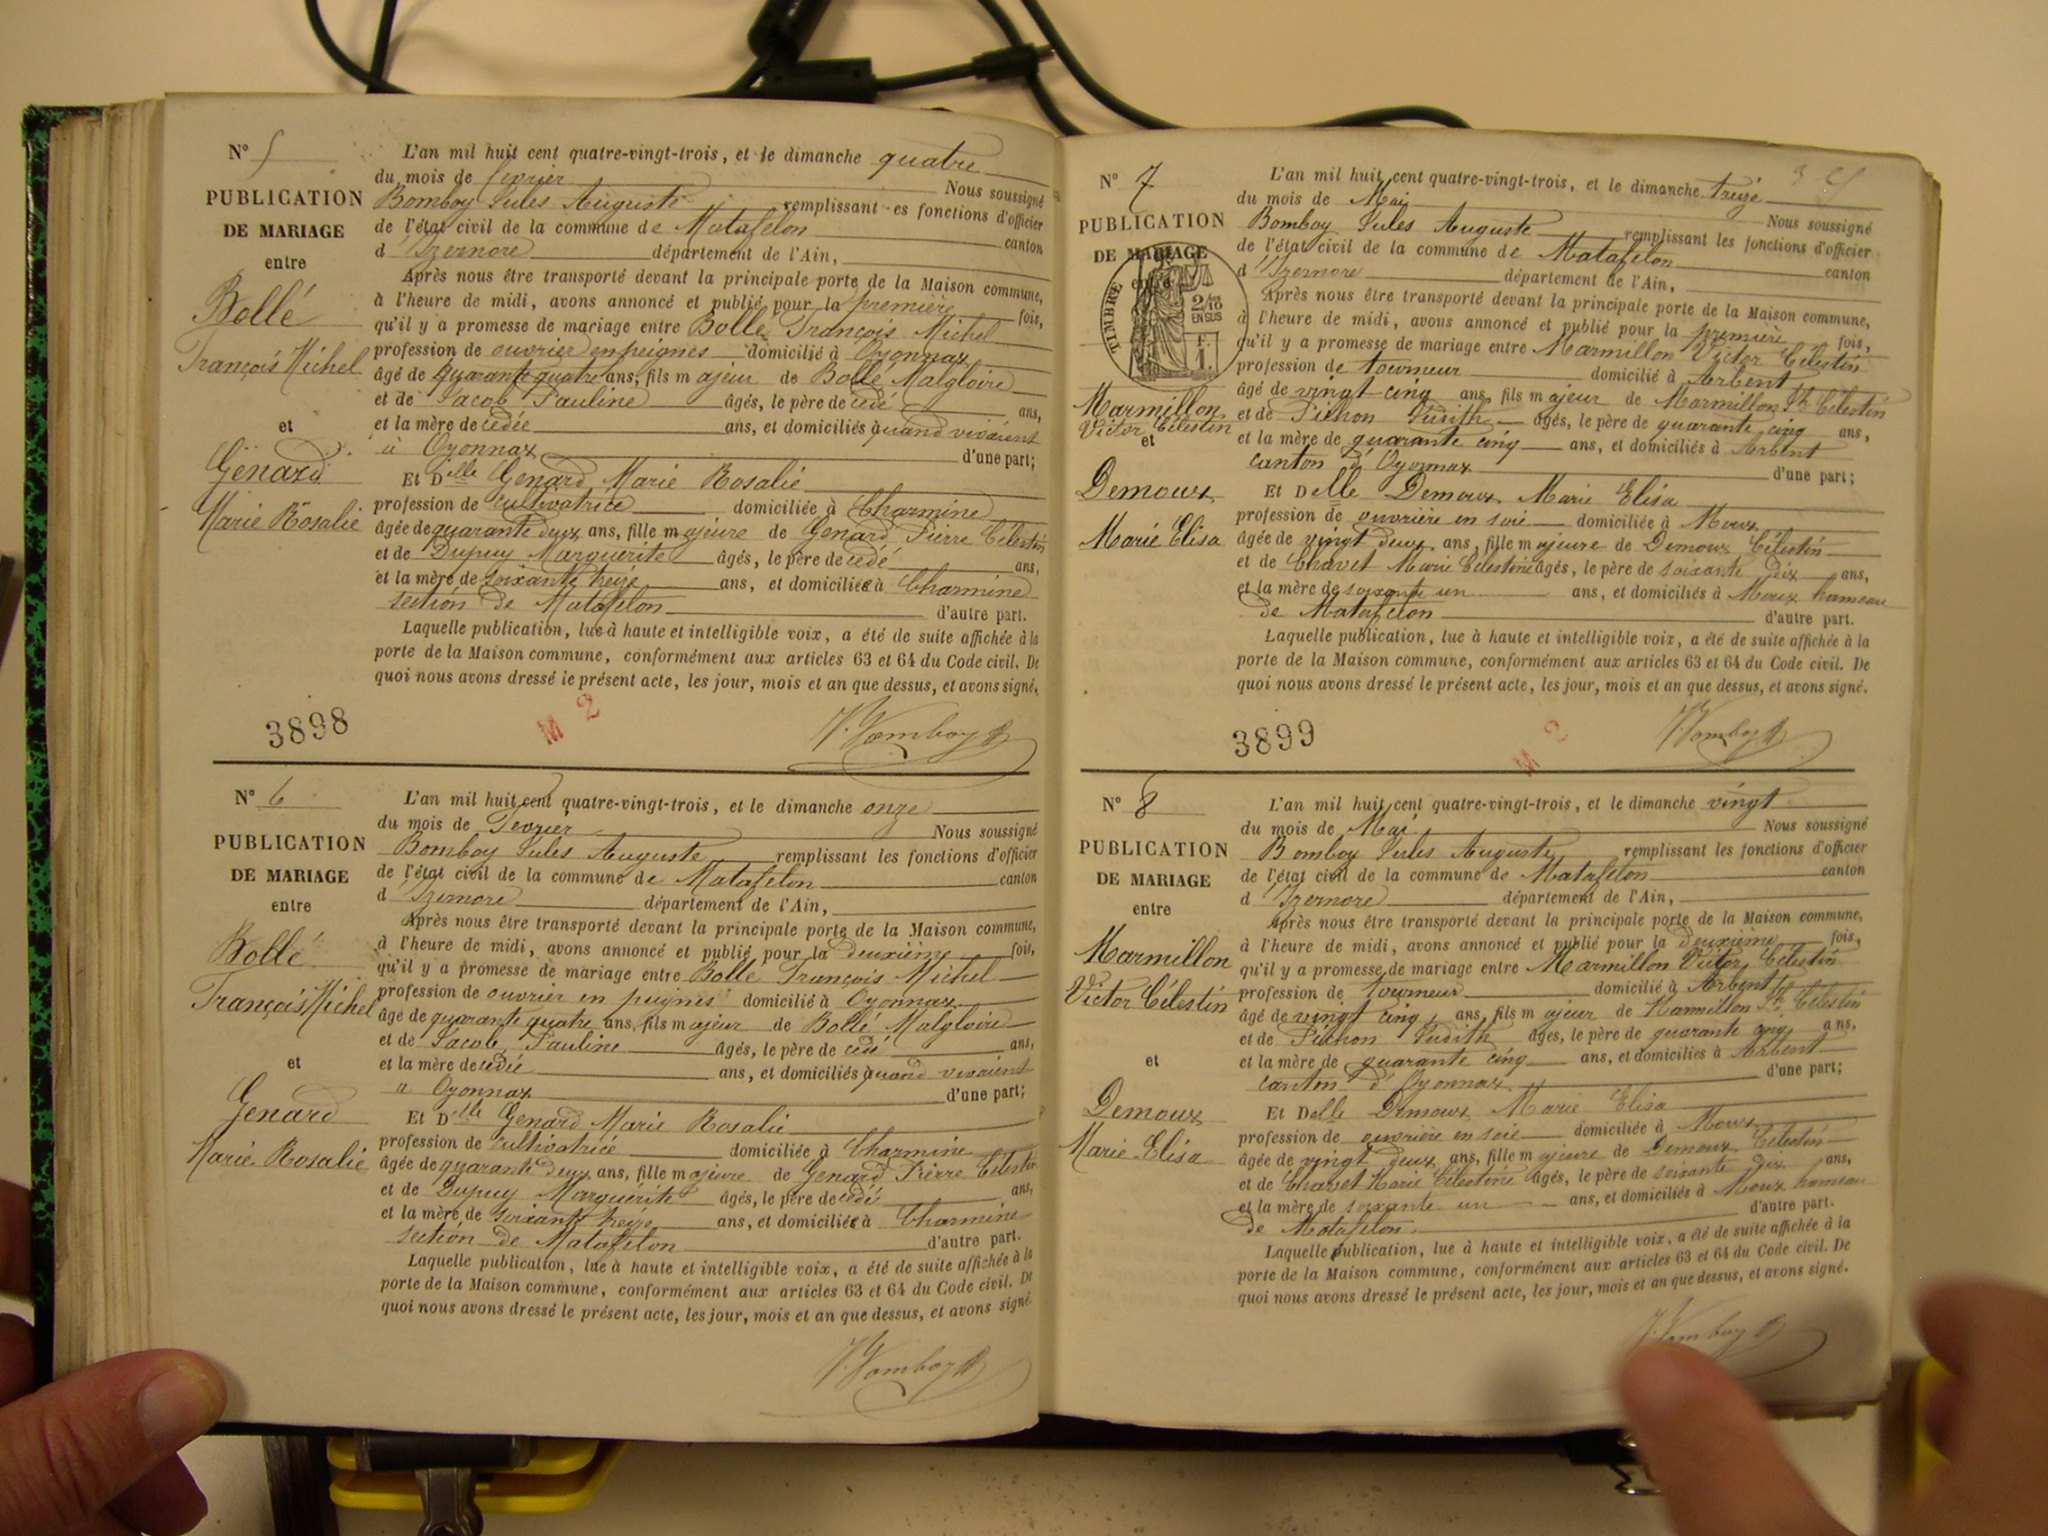 N° 5
PUBLICATION
DE MARIAGE
entre
Bollé
François Michel
et
Genard
Marie Rosalie
L'an mil huit cent quatre-vingt-trois, et le dimanche quatre
du mois de février Nous soussigné
Bomboy Jules Auguste remplissant les fonctions d'officier
de l'état civil de la commune de Matafelon canton
d'Izernore département de l'Ain,
Après nous être transporté devant la principale porte de la Maison commune,
à l'heure de midi, avons annoncé et publié pour la première fois,
qu'il y a promesse de mariage entre Bollé François Michel
profession de ouvrier en peignes domicilié à Oyonnax
âgé de quarante quatre ans, fils majeur de Bollé Malgloire
et de Jacob Pauline âgés, le père de cédé ans,
et la mère de cédée ans, et domiciliés à quand vivaient
à Oyonnax d'une part;
Et Dlle Genard Marie Rosalie
profession de cultivatrice domiciliée à Charmine
âgée de quarante deux ans, fille majeure de Genard Pierre Célestin
et de Dupuy Marguerite âgés, le père de cédé ans,
et la mère de soixante treize ans, et domiciliée à Charmine
section de Matafelon d'autre part.
Laquelle publication, lue à haute et intelligible voix, a été de suite affichée à la
porte de la Maison commune, conformément aux articles 63 et 64 du Code civil. De
quoi nous avons dressé le présent acte, les jour, mois et an que dessus, et avons signé.
3898 M 2 J. Bomboy
N° 6
PUBLICATION
DE MARIAGE
entre
Bollé
François Michel
et
Genard
Marie Rosalie
L'an mil huit cent quatre-vingt-trois, et le dimanche onze
du mois de Fevrier Nous soussigné
Bomboy Jules Auguste remplissant les fonctions d'officier
de l'état civil de la commune de Matafelon canton
d'Izernore département de l'Ain,
Après nous être transporté devant la principale porte de la Maison commune,
à l'heure de midi, avons annoncé et publié pour la deuxième fois,
qu'il y a promesse de mariage entre Bollé François Michel
profession de ouvrier en peignes domicilié à Oyonnax
âgé de quarante quatre ans, fils majeur de Bollé Malgloire
et de Jacob Pauline âgés, le père de cédé ans,
et la mère de cédée ans, et domiciliés à quand vivaient
à Oyonnax d'une part;
Et Dlle Genard Marie Rosalie
profession de cultivatrice domiciliée à Charmine
âgée de quarante deux ans, fille majeure de Genard Pierre Célestin
et de Dupuy Marguérite âgés, le père de cédé ans,
et la mère de soixante treize ans, et domiciliée à Charmine
section de Matafelon d'autre part.
Laquelle publication, lue à haute et intelligible voix, a été de suite affichée à la
porte de la Maison commune, conformément aux articles 63 et 64 du Code civil. De
quoi nous avons dressé le présent acte, les jour, mois et an que dessus, et avons signé
J. Bomboy
N° 7
PUBLICATION
DE MARIAGE
entre
TIMBRE
2/10
EN SUS
F.
1.
Marmillon
Victor Célestin
et
Demoux
Marie Elisa
L'an mil huit cent quatre-vingt-trois, et le dimanche treize
du mois de Mai Nous soussigné
Bomboy Jules Auguste remplissant les fonctions d'officier
de l'état civil de la commune de Matafelon canton
d'Izernore département de l'Ain,
Après nous être transporté devant la principale porte de la Maison commune,
à l'heure de midi, avons annoncé et publié pour la première fois,
qu'il y a promesse de mariage entre Marmillon Victor Célestin
profession de tourneur domicilié à Arbent
âgé de vingt cinq ans, fils majeur de Marmillon Célestin
et de Pichon Judith âgés, le père de quarante cinq ans,
et la mère de quarante cinq ans, et domiciliés à Arbent
canton d'Oyonnax d'une part;
Et Delle Demoux Marie Elisa
profession de ouvrière en soie domiciliée à Moux
âgée de vingt deux ans, fille majeure de Demoux Célestin
et de Chavet Marie Célestine âgés, le père de soixante dix ans,
et la mère de soixante un ans, et domiciliés à Moux hameau
de Matafelon d'autre part.
Laquelle publication, lue à haute et intelligible voix, a été de suite affichée à la
porte de la Maison commune, conformément aux articles 63 et 64 du Code civil. De
quoi nous avons dressé le présent acte, les jour, mois et an que dessus, et avons signé.
3899 M 2 J. Bomboy
N° 8
PUBLICATION
DE MARIAGE
entre
Marmillon
Victor Célestin
et
Demoux
Marie Elisa
L'an mil huit cent quatre-vingt-trois, et le dimanche vingt
du mois de Mai Nous soussigné
Bomboy Jules Auguste remplissant les fonctions d'officier
de l'état civil de la commune de Matafelon canton
d'Izernore département de l'Ain,
Après nous être transporté devant la principale porte de la Maison commune,
à l'heure de midi, avons annoncé et publié pour la deuxième fois,
qu'il y a promesse de mariage entre Marmillon Victor Célestin
profession de tourneur domicilié à Arbent
âgé de vingt cinq ans, fils majeur de Marmillon Célestin
et de Pichon Judith âgés, le père de quarante cinq ans,
et la mère de quarante cinq ans, et domiciliés à Arbent
canton d'Oyonnax d'une part;
Et Delle Demoux Marie Elisa
profession de ouvrière en soie domiciliée à Moux
âgée de vingt deux ans, fille majeure de Demoux Célestin
et de Chavet Marie Célestine âgés, le père de soixante dix ans,
et la mère de soixante un ans, et domiciliés à Moux hameau
de Matafelon. d'autre part.
Laquelle publication, lue à haute et intelligible voix, a été de suite affichée à la
porte de la Maison commune, conformément aux articles 63 et 64 du Code civil. De
quoi nous avons dressé le présent acte, les jour, mois et an que dessus, et avons signé.
J. Bomboy